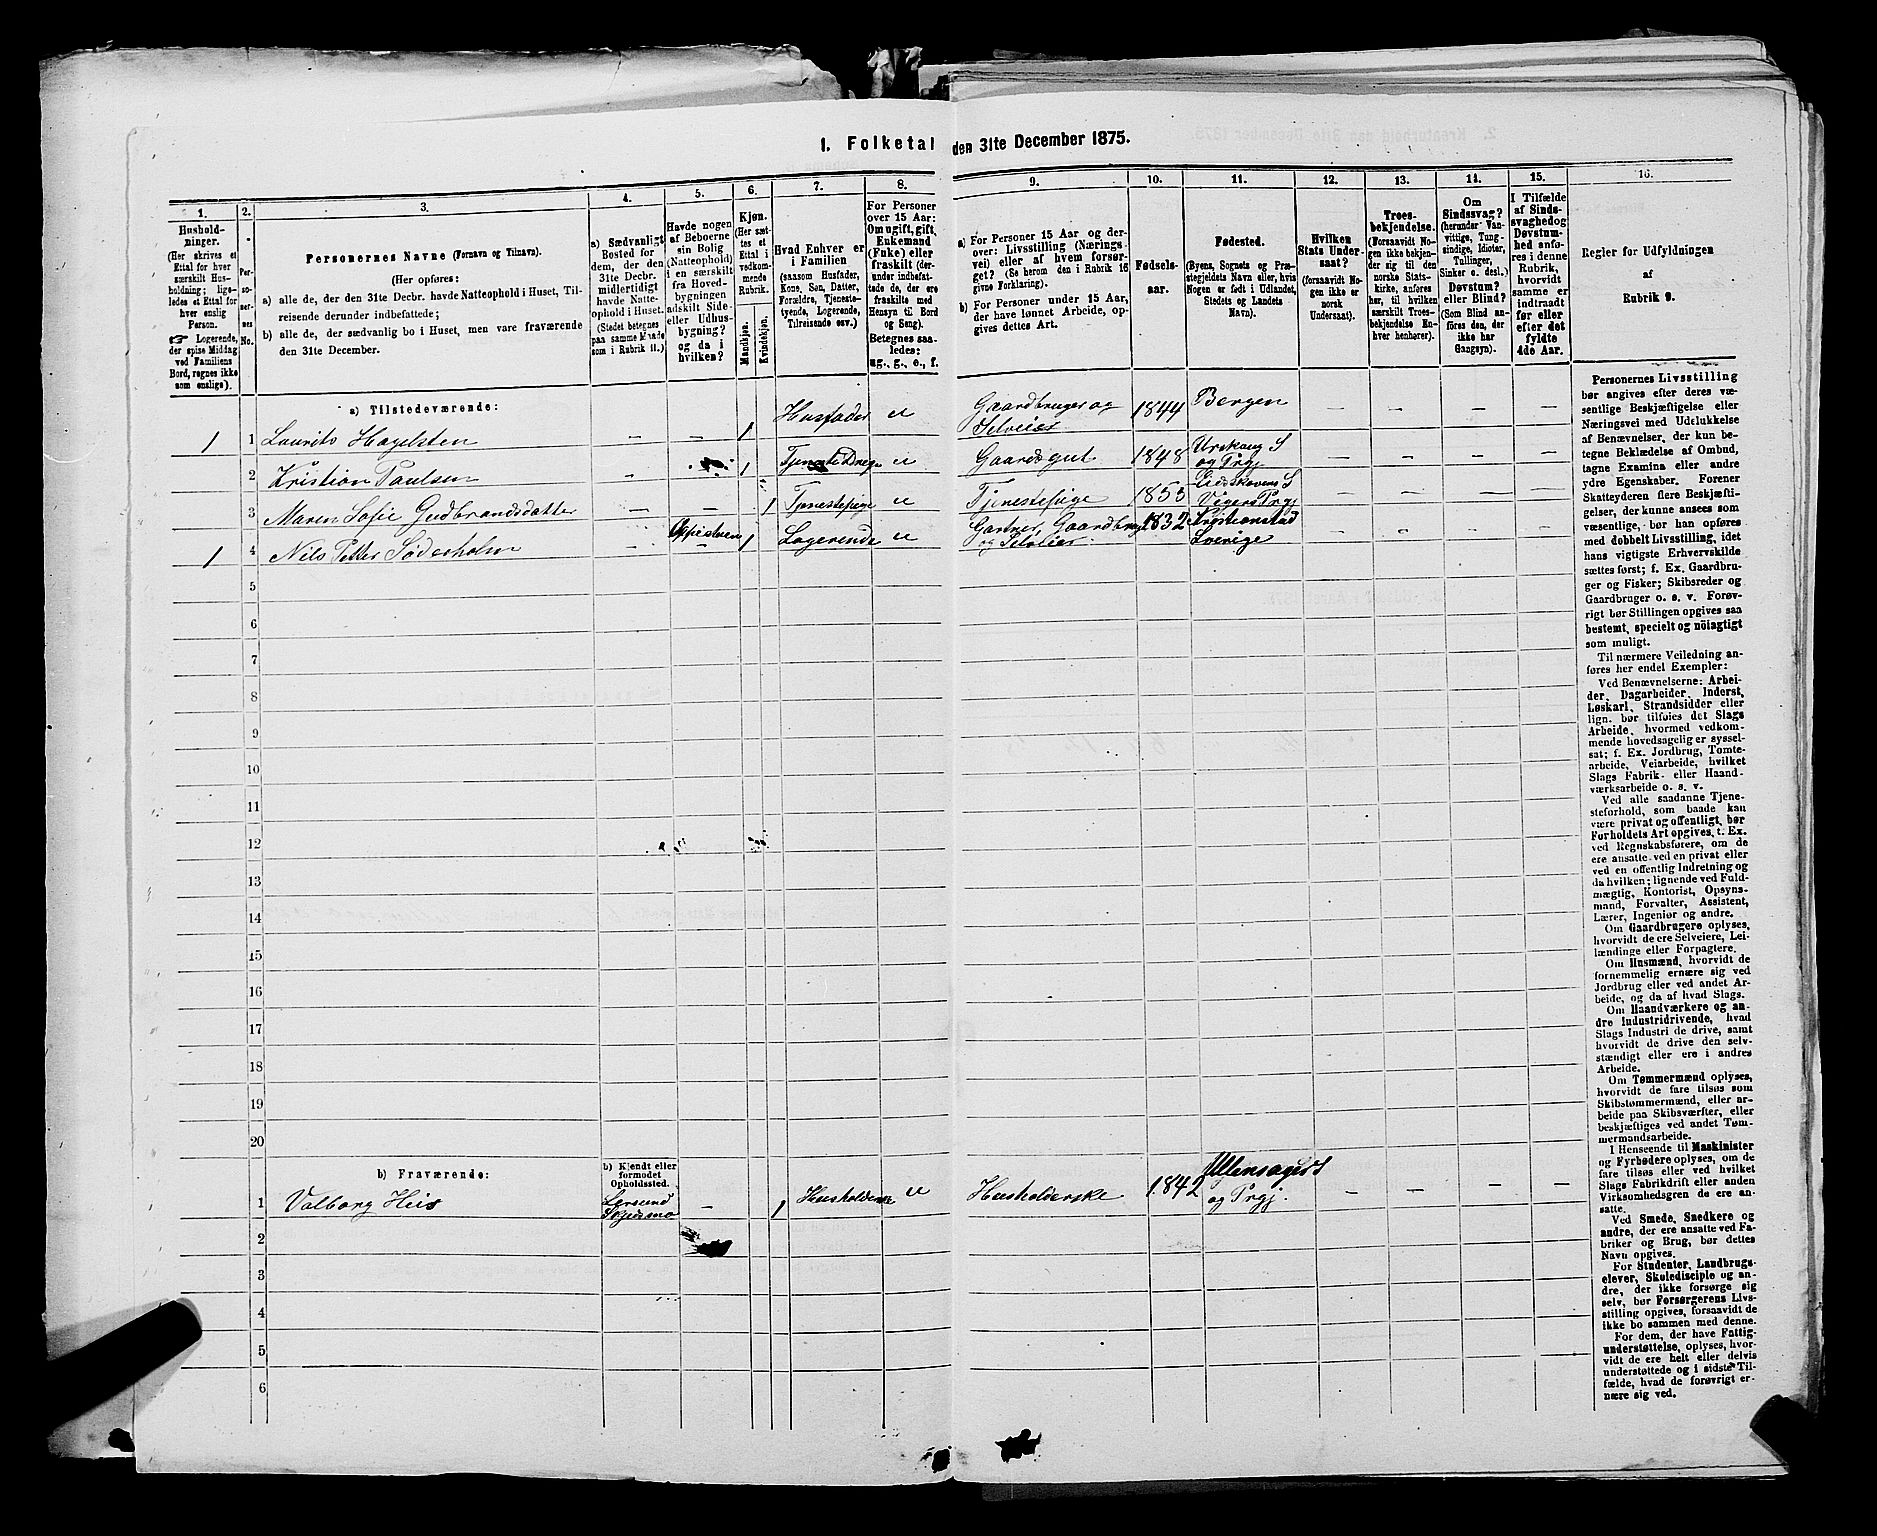 1. Folketal den 31te December 1875.
1.
Hushold-
ninger.
(Her skrives et
Ettal for hver
særskilt Hus-
holdning; lige-
ledes et Ettal for
hver enslig
Person.
☞ Logerende,
der spise Middag
ved Familiens
Bord, regnes ikke
som enslige).
2.
Per-
soner-
nes
No.
3.
Personernes Navne (Fornavn og Tilnavn).
(Her opføres:
a) alle de, der den 31te Decbr. havde Natteophold i Huset, Til-
reisende derunder indbefattede;
b) alle de, der sædvanlig bo i Huset, men vare fraværende
den 31te December.
4.
a) Sædvanligt
Bosted for
dem, der den
31te Decbr.
midlertidigt
havde Natte-
ophold i Huset.
(Stedet betegnes
paa samme Maade
som i Rubrik 11.)
5.
Havde nogen
af Beboerne
sin Bolig
(Natteophold)
i en særskilt
fra Hoved-
bygningen
adskilt Side
eller Udhus-
bygning?
og da i
hvilken?
6.
Kjøn.
(Her sæt-
tes et
Ettal i
vedkom-
mende
Rubrik.
Mandkjøn.
Kvindekjøn.
7.
Hvad Enhver er
i Familien
(saasom Husfader,
Kone, Søn, Datter,
Forældre, Tjeneste-
tyende, Logerende,
Tilreisende osv.)
8.
For Personer
over 15 Aar:
Om ugift, gift,
Enkemand
(Enke) eller
fraskilt (der-
under indbefat-
tede de, der ere
fraskilte med
Hensyn til Bord
og Seng).
Betegnes saa-
ledes:
ug., g., e., f.
9.
a) For Personer 15 Aar og der-
over: Livsstilling (Nærings-
vei) eller af hvem forsør-
get? (Se herom den i Rubrik 16
givne Forklaring).
b) For Personer under 15 Aar,
der have lønnet Arbeide, op-
gives dettes Art.
10.
Fødsels-
aar.
11.
Fødested.
(Byens, Sognets og Præ-
stegjeldets Navn eller, hvis
Nogen er født i Udlandet,
Stedets og Landets
Navn).
12.
Hvilken
Stats Under-
saat?
(forsaavidt No-
gen ikke er
norsk
Undersaat).
13.
Troes-
bekjendelse.
(Forsaavidt No-
gen ikke bekjen-
der sig til den
norske Stats-
kirke, anføres
her, til hvilken
særskilt Troes-
bekjendelse En-
hver henhører).
14.
Om
Sindssvag?
(herunder Van-
vittige, Tung-
sindige, Idioter,
Tullinger,
Sinker o. desl.)
Døvstum?
eller Blind?
(Som Blind an-
føres den, der
ikke har
Gangsyn).
15.
I Tilfælde
af Sinds-
svaghed og
Døvstum-
hed anfø-
res i denne
Rubrik,
hvorvidt
samme er
indtraadt
før eller
efter det
fyldte
4de Aar.
16.
Regler for Udfyldningen
af
Rubrik 9.
a) Tilstedeværende:
1 1 Laurits Hagelsten — — 1 Husfader u Gaardbruger og Selveier 1844 Bergen — — — —
2 Kristian Paulsen — — 1 Tjenestedreng u Gaardsgut 1848 Urskoug S og Prgj. — — — —
3 Maren Sofie Gudbrandsdatter — — 1 Tjenestepige u Tjenestepige 1853 Eidskovens S Vigers Prgj — — — —
1 4 Nils Petter Söderholm — 1 Logerende u Gartner, Gaardbruger og Selveier 1832 Kristianstad Sverige — — — —
5
6
7
8
9
10
11
12
13
14
15
16
17
18
19
20
b) Fraværende:
b) Kjendt eller
formodet
Opholdssted.
1 Valborg Heis — 1 Husholderske u Husholderske 1842 Ullensagers og Prgj. — — — —
2
3
4
5
6
Personernes Livsstilling
bør angives efter deres væ-
sentlige Beskjæftigelse eller
Næringsvei med Udelukkelse
af Benævnelser, der kun be-
tegne Beklædelse af Ombud,
tagne Examina eller andre
ydre Egenskaber. Forener
Skatteyderen flere Beskjæfti-
gelser, der kunne ansees som
væsentlige, bør han opføres
med dobbelt Livsstilling, idet
hans vigtigste Erhvervskilde
sættes først; f. Ex. Gaardbru-
ger og Fisker; Skibsreder og
Gaardbruger o. s. v. Forøv-
rigt bør Stillingen opgives saa
bestemt, specielt og nöiagtigt
som muligt.
Til nærmere Veiledning an-
føres her endel Exempler:
Ved Benævnelserne: Arbei-
der, Dagarbeider, Inderst,
Løskarl, Strandsidder eller
lign. bør tilføies det Slags
Arbeide, hvormed vedkom-
mende hovedsagelig er syssel-
sat; f. Ex. Jordbrug, Tomte-
arbeide, Veiarbeide, hvilket
Slags Fabrik- eller Haand-
værksarbeide o. s. v.
Ved alle saadanne Tjene-
steforhold, som baade kan
være privat og offentligt, bør
Forholdets Art opgives, t. Ex.
ved Regnskabsførere, om de
ere ansatte ved en privat eller
ved en offentlig Indretning og
da hvilken; lignende ved Fuld-
mægtig, Kontorist, Opsyns-
mand, Forvalter, Assistent,
Lærer, Ingeniør og andre.
Om Gaardbrugere oplyses,
hvorvidt de ere Selveiere, Lei-
lændinge eller Forpagtere.
Om Husmænd, hvorvidt de
fornemmelig ernære sig ved
Jordbrug eller ved andet Ar-
beide, og da af hvad Slags.
Om Haandværkere og an-
dre Industridrivende, hvad
Slags Industri de drive, samt
hvorvidt de drive den selv-
stændigt eller ere i andres
Arbeide.
Om Tømmermænd oplyses,
hvorvidt de fare tilsøs som
Skibstømmermænd, eller ar-
beide paa Skibsværfter, eller
beskjæftiges ved andet Tøm-
mermandsarbeide.
I Henseende til Maskinister
og Fyrbødere oplyses, om de
fare tilsøs eller ved hvilket
Slags Fabrikdrift eller anden
Virksomhedsgren de ere an-
satte.
Ved Smede, Snedkere og
andre, der ere ansatte ved Fa-
briker og Brug, bør dettes
Navn opgives.
For Studenter, Landbrugs-
elever, Skoledisciple og an-
dre, der ikke forsørge sig
selv, bør Forsørgerens Livs-
stilling opgives, forsaavidt de
ikke bo sammen med denne.
For dem, der have Fattig-
understøttelse, oplyses, hvor-
vidt de ere helt eller delvis
understøttede og i sidste Til-
fælde, hvad de forøvrigt er-
nære sig ved.